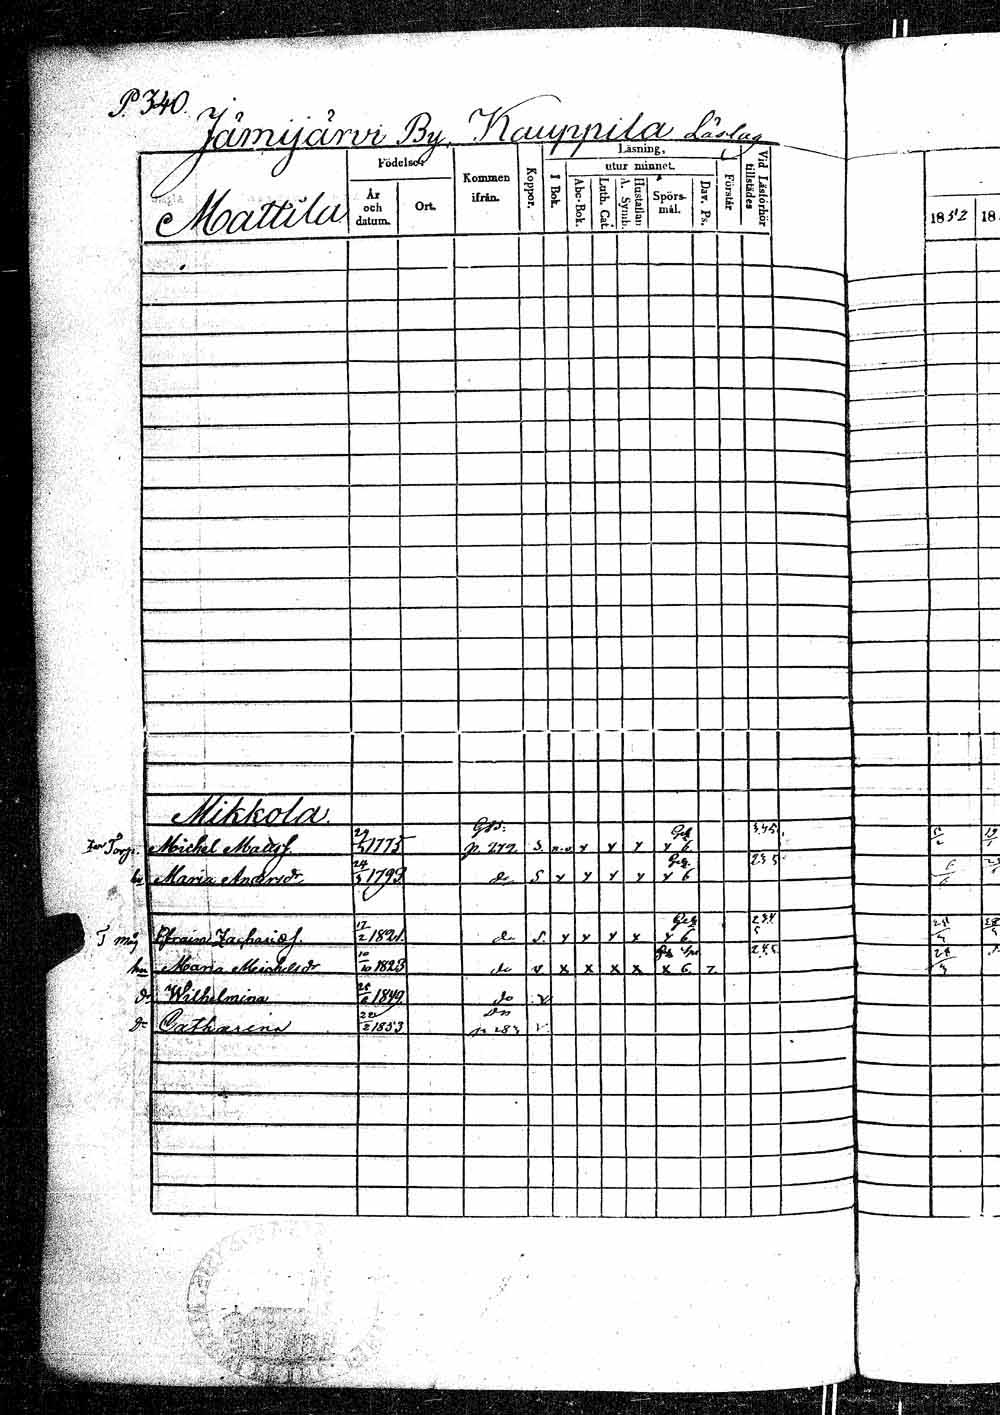 P. 340.
Jämijärvi By, Kauppila Läslag
Mattila
Födelse-
År och datum.
Ort.
Kommen ifrån.
Koppor.
Läsning,
I Bok.
utur minnet.
Abc-Bok.
Luth. Cat.
Hustaflan A. Symb.
Spörs-mål.
Dav. Ps.
Förstår
Vid Läsförhör tillstädes
1852 18
Mikkola.
Michel Matts. 1775 p. 272 S.
hu Maria Andersdr. 24/5 1793 do S y y y y y 6
Efraim Zacharias. 17/2 1821. do S. y y y x y 6
hu Maria Michelsdr 10/10 1823 do v x x x x x 6 7
dr Wilhelmina 1849 do v
dr Catharina 22/2 1853 p 283 v